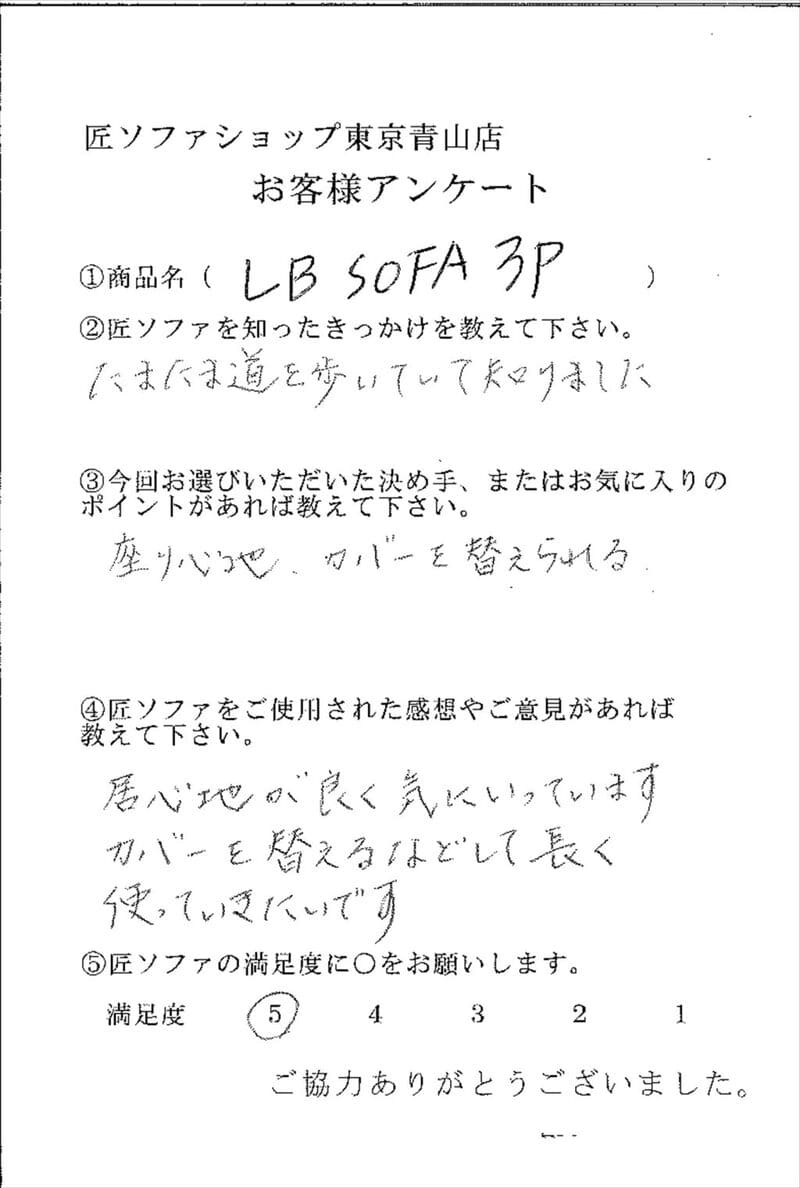 匠ソファショップ東京青山店
お客様アンケート
①商品名（ LB SOFA 3P ）
②匠ソファを知ったきっかけを教えて下さい。
たまたま道を歩いていて知りました
③今回お選びいただいた決め手、またはお気に入りの
ポイントがあれば教えて下さい。
座り心地、カバーを替えられる
④匠ソファをご使用された感想やご意見があれば
教えて下さい。
居心地が良く気にいっています
カバーを替えるなどして長く
使っていきたいです
⑤匠ソファの満足度に○をお願いします。
満足度 5 4 3 2 1
ご協力ありがとうございました。